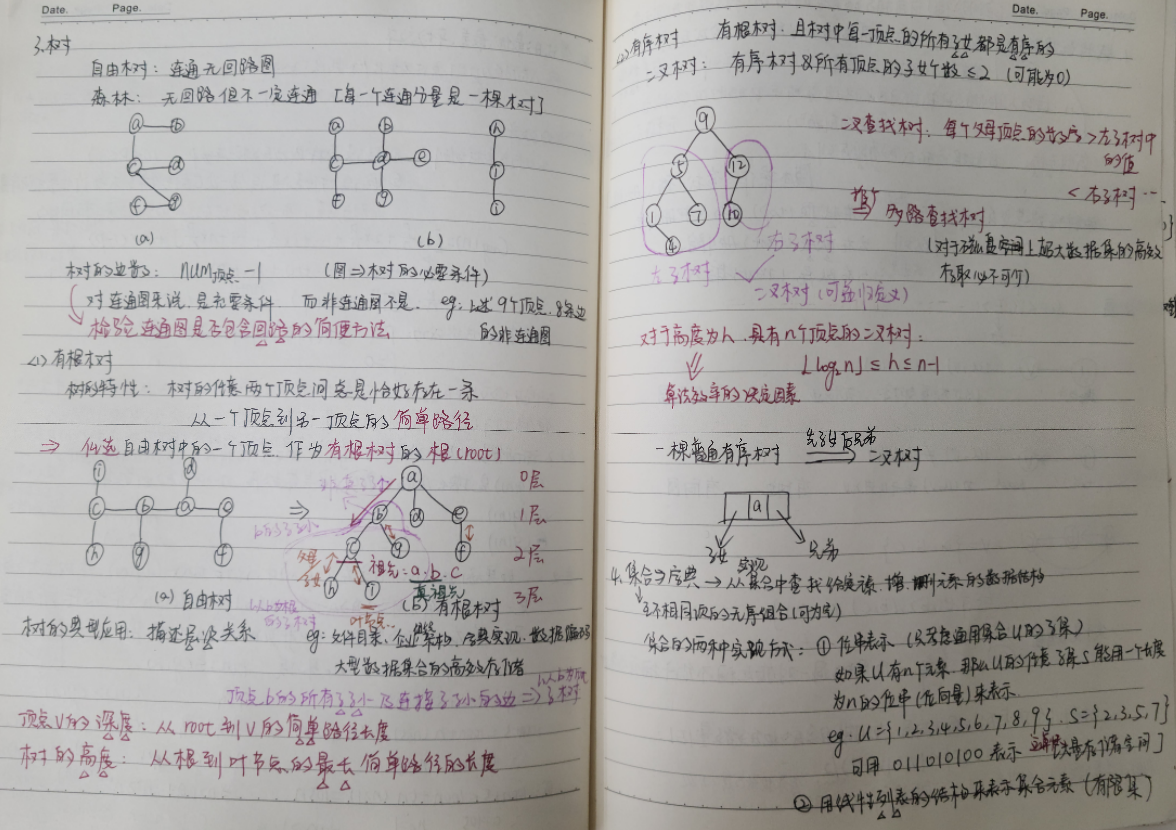 Date. Page.
3.树
自由树：连通无回路图
森林：无回路但不一定连通 [每一个连通分量是一棵树]
a b
c d
f g
(a)
a b h
c d e i
f g j
(b)
树的边数：num顶点 -1 (图⇒树的必要条件)
对连通图来说，是充要条件 而非连通图不是. eg:上述9个顶点.8条边
的非连通图
检验连通图是否包含回路的简便方法
(1)有根树
树的特性：树的任意两个顶点间总是恰好存在一条
从一个顶点到另一顶点的简单路径
⇒ 任选自由树中的一个顶点，作为有根树的根(root)
i d
c b a e
h g f
(a)自由树
⇒
a 0层
b d e 1层
c g f 2层
h i 3层
b的子孙
父母
子女
祖先：a.b.c
真祖先
以b为根
的子树
叶节点
(b)有根树
树的典型应用：描述层次关系 eg：文件目录，企业架构，字典实现，数据编码
大型数据集合的高效存储
顶点b的所有子孙及连接子孙的边⇒以b为根
子树
顶点V的深度：从root到V的简单路径长度
树的高度：从根到叶节点的最长简单路径的长度
Date. Page.
(2)有序树 有根树，且树中每一顶点的所有子女都是有序的
二叉树：有序树&所有顶点的子女个数≤2 (可能为0)
9
5 12
1 7 10
4
左子树
右子树
二叉树(可递归定义)
二叉查找树：每个父母顶点的数字>左子树中
的值
<右子树…
推广
⇒ 多路查找树
(对于磁盘空间上超大数据集的高效
存取必不可少)
对于高度为h，具有n个顶点的二叉树：
⌊log₂n⌋≤h≤n-1
算法效率的决定因素
一棵普通有序树 先子女后兄弟 ⇒ 二叉树
a
子女 兄弟
4.集合与字典 实现 → 从集合中查找给定元素，增，删元素的数据结构
互不相同项的无序组合(可为空)
集合的两种实现方式：① 位串表示 (只考虑通用集合U的子集)
如果U有n个元素，那么U的任意子集S能用一个长度
为n的位串(位向量)来表示
eg. U={1,2,3,4,5,6,7,8,9}. S={2,3,5,7}
可用 011010100 表示
② 用线性列表的结构来表示集合元素 (有限集)